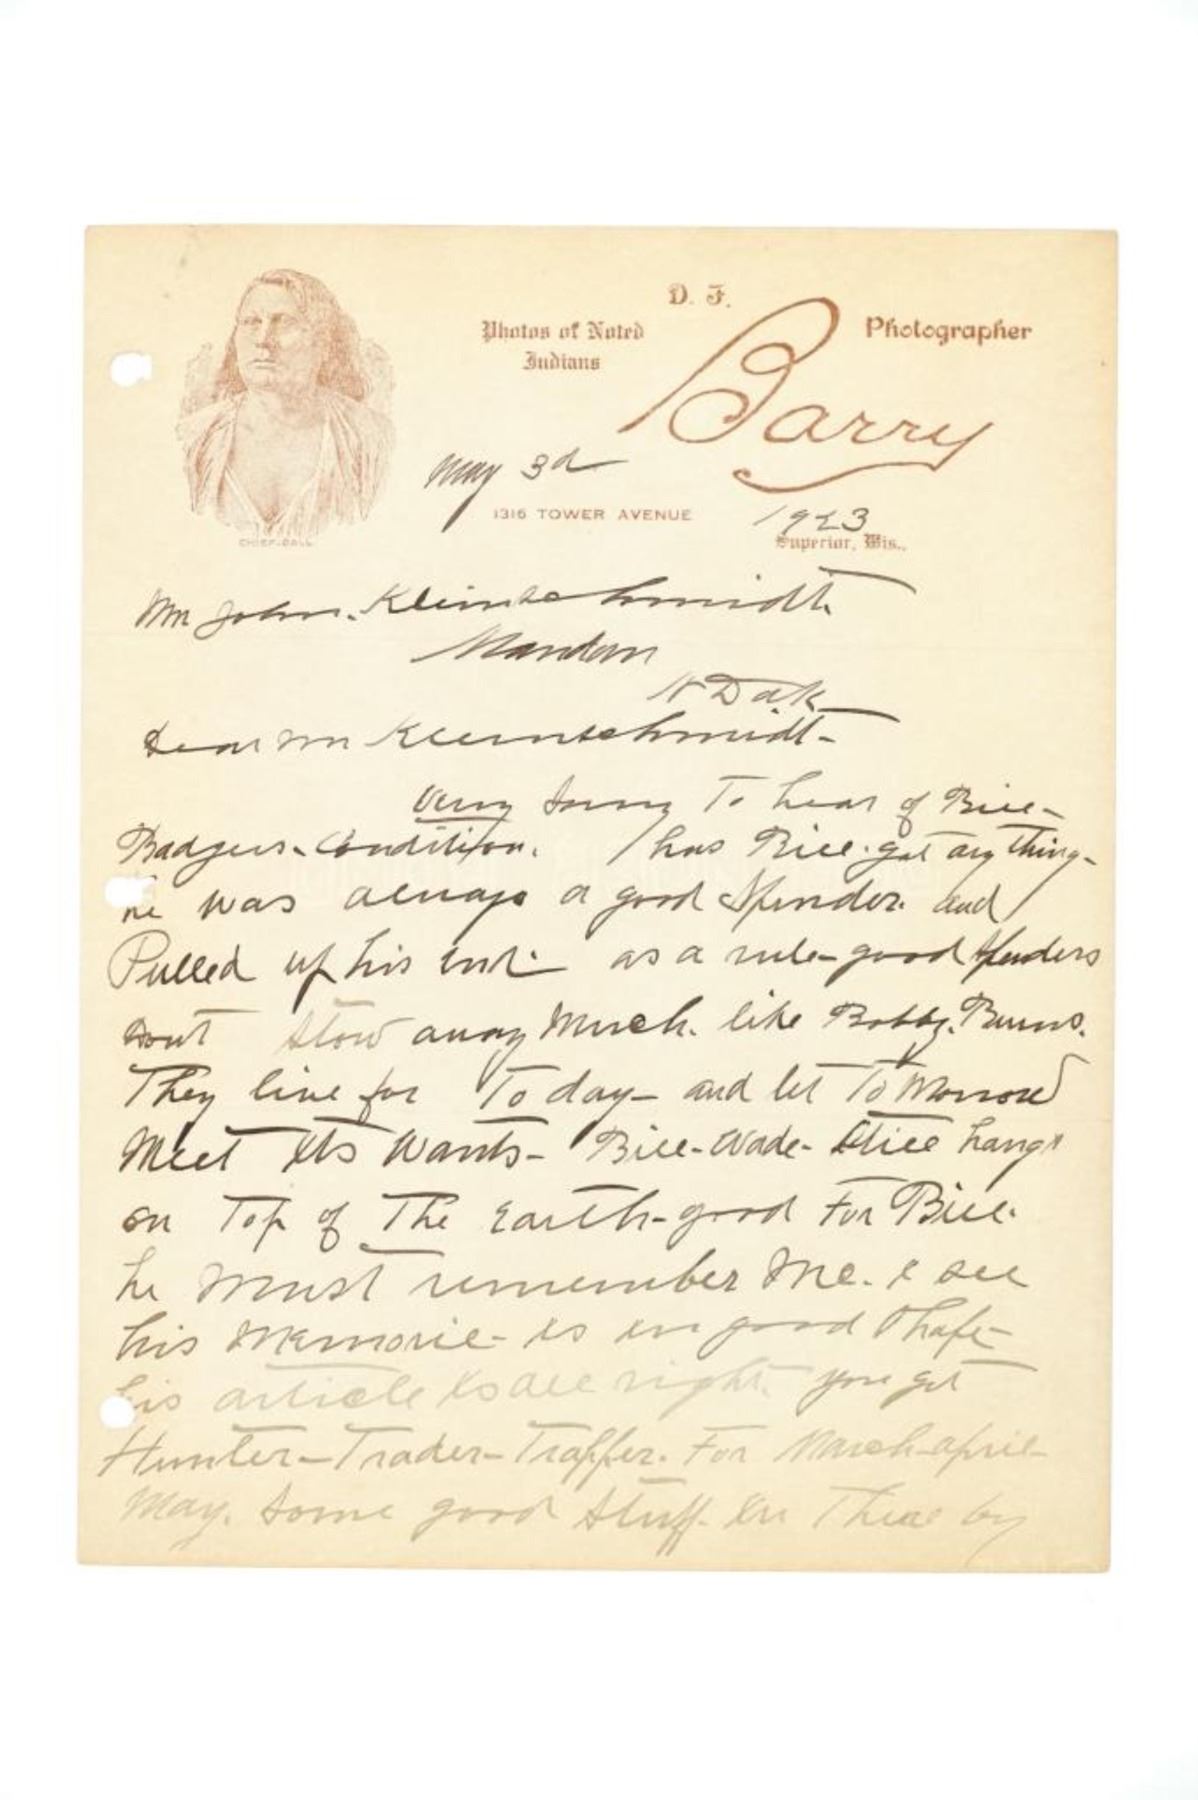 D. F.
Photos of Noted
Indians
Barry
Photographer
May 3d
1316 TOWER AVENUE
1923
Superior, Wis.,
CHIEF GALL
Mr John. Kleinschmidt.
Mandan
N Dak
Dear Mr Kleinschmidt-
Very Sorry To hear of Bill-
Badgers-Condition. has Bill. got any thing-
he was always a good Spender. and
Pulled up his end. as a rule-good Spenders
Dont Stow away Much. like Bobby. Burns.
They live for To day- and let To Morrow
Meet Its Wants- Bill-Wade-Still hangs
on Top of The Earth-good For Bill.
he Must remember Me. I see
his Memorie-Is in good Shape-
his article Is all right. you get
Hunter-Trader-Trapper. For March-april-
May. Some good Stuff. In There by